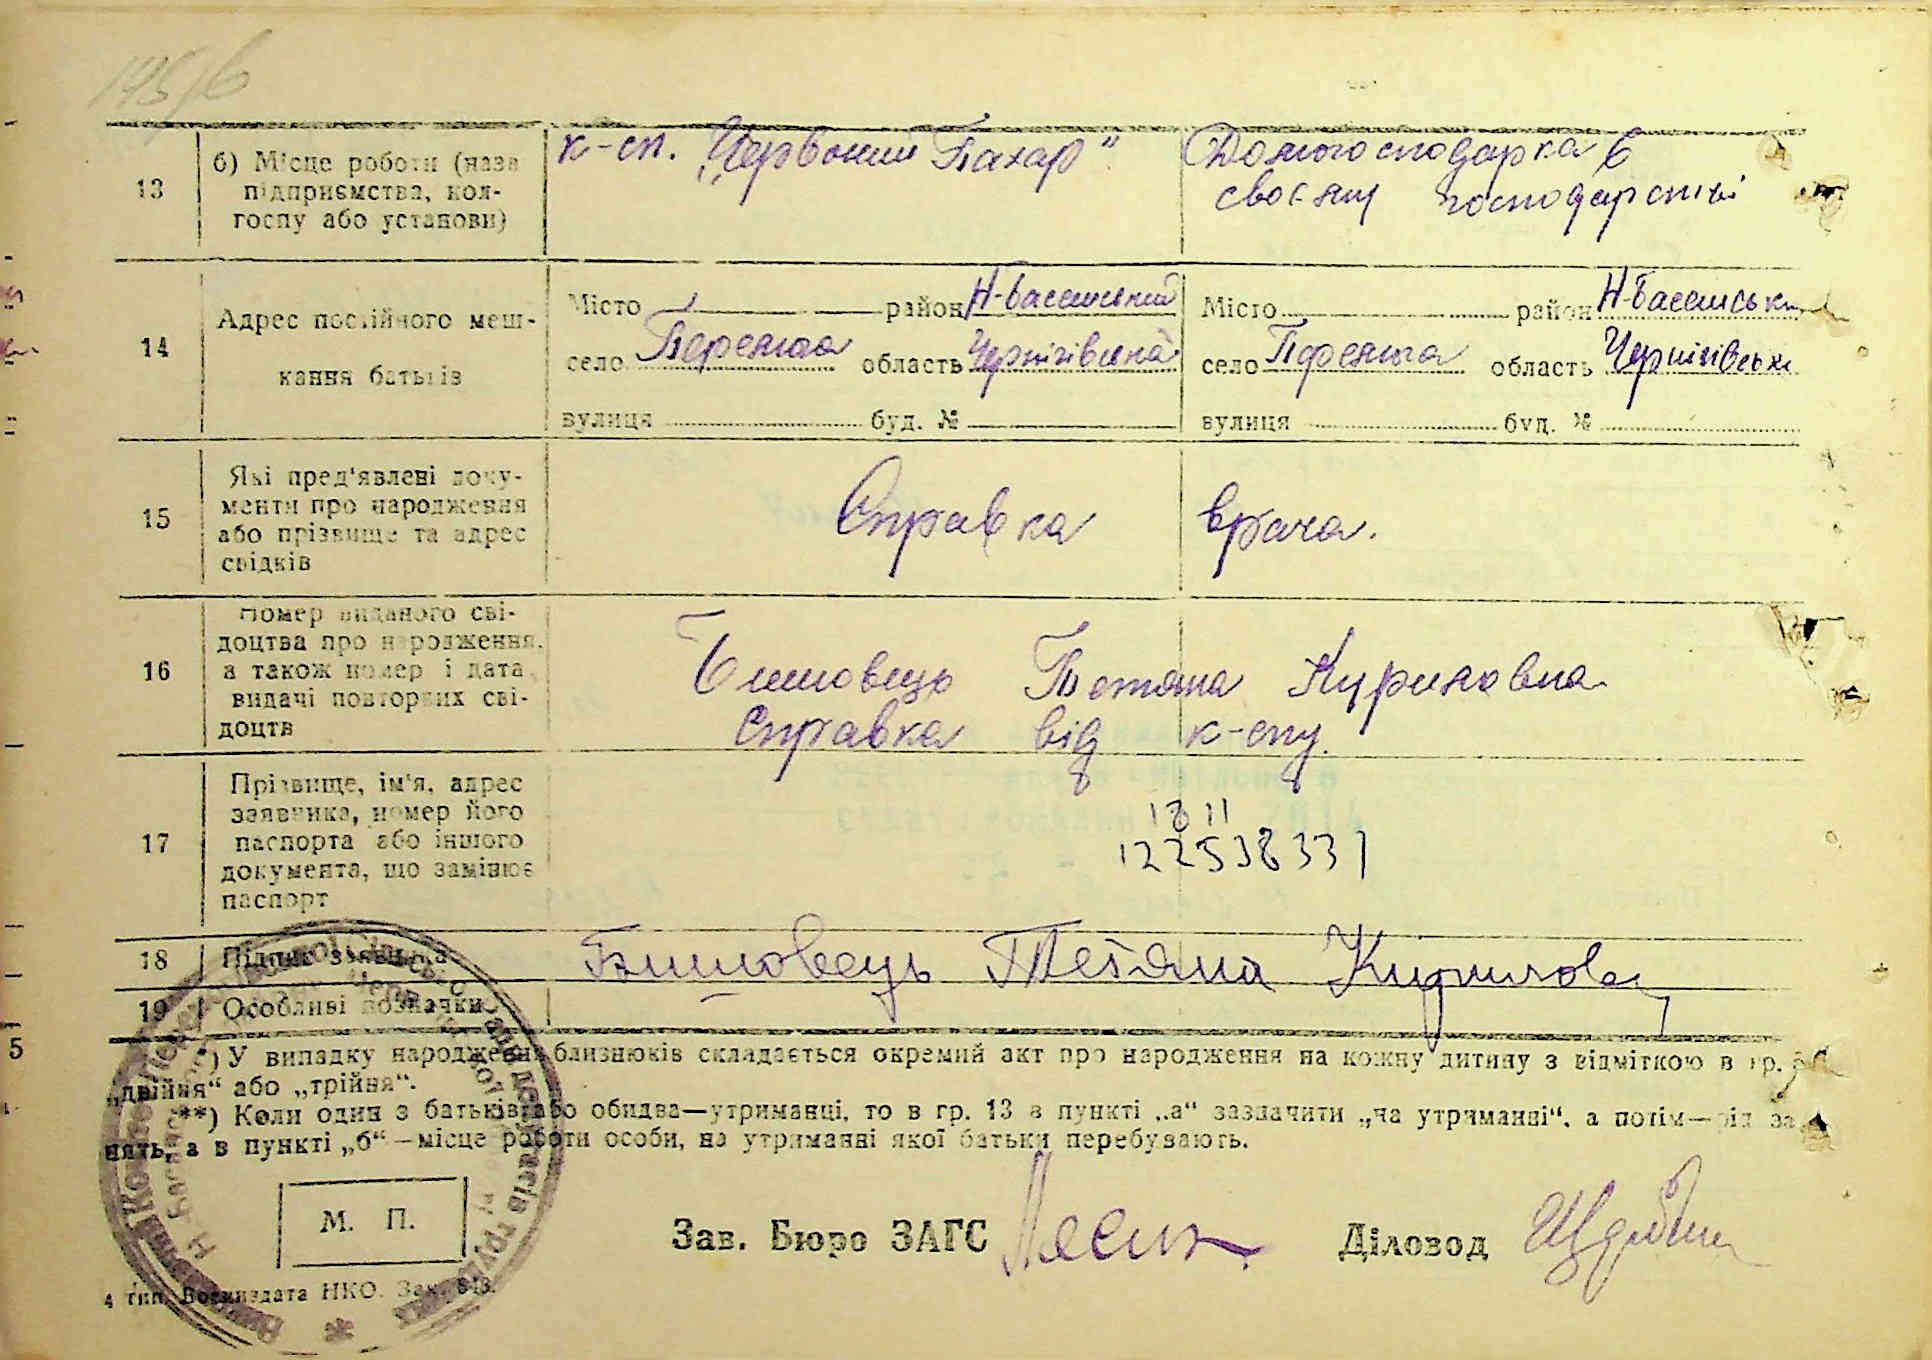 145/6
13
б) Місце роботи (назв
підприємства, кол-
госпу або установи)
к-сп. „Червоний Пахар"
Домогосподарка в
своєму господарстві
14
Адрес постійного меш-
кання батьків
Місто район Н-Басанський
село область Чернігівська
вулиця буд. №
Місто район Н-Басанськ
село область Чернігівськ
вулиця буд. №
15
Які пред'явлені доку-
менти про народження
або прізвище та адрес
свідків
Справка врача.
16
Номер виданого сві-
доцтва про народження,
а також номер і дата
видачі повторних сві-
доцтв
Тетяна
Справка від к-спу.
17
Прізвище, ім'я, адрес
заявника, номер його
паспорта або іншого
документа, що замінює
паспорт
18 11
122538331
18
Підпис заявника
Тетяна
19
Особливі позначки
*) У випадку народження близнюків складається окремий акт про народження на кожну дитину з відміткою в гр. 5
„двійня“ або „трійня“.
**) Коли один з батьків або обидва—утриманці, то в гр. 13 в пункті „а“ зазначити „на утриманні“, а потім—рід за-
нять, а в пункті „б“—місце роботи особи, на утриманні якої батьки перебувають.
М. П.
Зав. Бюро ЗАГС
Діловод
4 тип. Воениздата НКО. Зак.
5